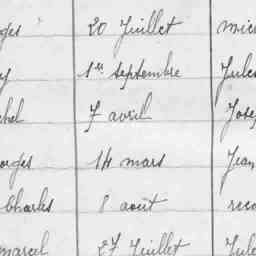 ges 20 Juillet mic
y 1er septembre Jules
chel 7 avril Jose
orges 14 mars Jean
Charles 8 août reco
marcel 27 Juillet Jule